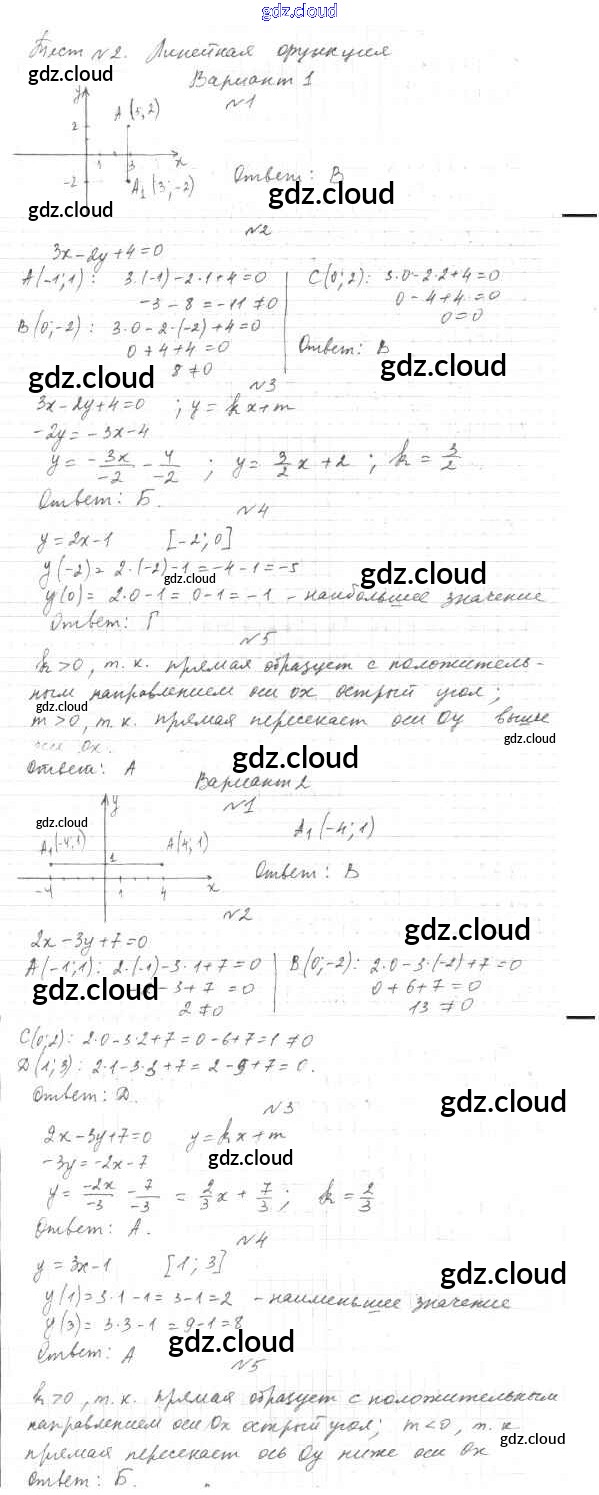 gdz.cloud
Тест №2. Линейная функция
gdz.cloud
Вариант 1
№1
y
A (3; 2)
2
1 3 x
-2
A₁ (3; -2)
Ответ: В
gdz.cloud
gdz.cloud
№2
3x - 2y + 4 = 0
A(-1; 1): 3·(-1) - 2·1 + 4 = 0
-3 - 8 = -11 ≠ 0
B(0; -2): 3·0 - 2·(-2) + 4 = 0
0 + 4 + 4 = 0
8 ≠ 0
C(0; 2): 3·0 - 2·2 + 4 = 0
0 - 4 + 4 = 0
0 = 0
Ответ: В
gdz.cloud
gdz.cloud
№3
3x - 2y + 4 = 0 ; y = kx + m
-2y = -3x - 4
y = -3x/-2 - 4/-2 ; y = 3/2 x + 2 ; k = 3/2
Ответ: Б.
№4
y = 2x - 1 [-2; 0]
y(-2) = 2·(-2) - 1 = -4 - 1 = -5
gdz.cloud
gdz.cloud
y(0) = 2·0 - 1 = 0 - 1 = -1 - наибольшее значение
Ответ: Г
№5
k > 0, т.к. прямая образует с положитель-
ным направлением оси ох острый угол;
gdz.cloud
m > 0, т.к. прямая пересекает оси Оу выше
gdz.cloud
оси Ох.
gdz.cloud
Ответ: А
Вариант 2
№1
y
gdz.cloud
A₁(-4; 1) A(4; 1)
1
-4 1 4 x
A₁(-4; 1)
Ответ: В
№2
gdz.cloud
2x - 3y + 7 = 0
A(-1; 1): 2·(-1) - 3·1 + 7 = 0
gdz.cloud
-3 + 7 = 0
2 ≠ 0
B(0; -2): 2·0 - 3·(-2) + 7 = 0
0 + 6 + 7 = 0
13 ≠ 0
C(0; 2): 2·0 - 3·2 + 7 = 0 - 6 + 7 = 1 ≠ 0
D(1; 3): 2·1 - 3·3 + 7 = 2 - 9 + 7 = 0.
Ответ: D.
gdz.cloud
№3
2x - 3y + 7 = 0 y = kx + m
-3y = -2x - 7
gdz.cloud
y = -2x/-3 - 7/-3 = 2/3 x + 7/3 ; k = 2/3
Ответ: А.
№4
y = 3x - 1 [1; 3]
gdz.cloud
y(1) = 3·1 - 1 = 3 - 1 = 2 - наименьшее значение
y(3) = 3·3 - 1 = 9 - 1 = 8
gdz.cloud
Ответ: А
№5
k > 0, т.к. прямая образует с положительным
направлением оси Ох острый угол; m < 0, т.к
gdz.cloud
прямая пересекает ось Оу ниже оси Ох
Ответ: Б.